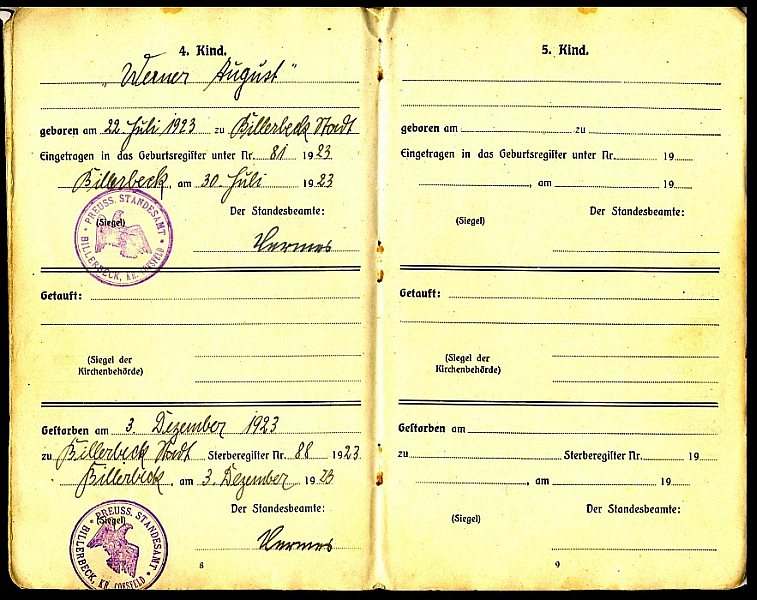 4. Kind.
"Werner August"
geboren am 22. Juli 1923 zu Billerbeck Stadt
Eingetragen in das Geburtsregister unter Nr. 81 1923
Billerbeck, am 30. Juli 1923
PREUSS. STANDESAMT
BILLERBECK, KR. COESFELD
(Siegel)
Der Standesbeamte:
Hermes
Getauft:
(Siegel der
Kirchenbehörde)
Gestorben am 3. Dezember 1923
zu Billerbeck Stadt Sterberegister Nr. 88 1923
Billerbeck, am 3. Dezember 1923
PREUSS. STANDESAMT
BILLERBECK, KR. COESFELD
(Siegel)
Der Standesbeamte:
Hermes
8
5. Kind.
geboren am zu
Eingetragen in das Geburtsregister unter Nr. 19
, am 19
(Siegel)
Der Standesbeamte:
Getauft:
(Siegel der
Kirchenbehörde)
Gestorben am
zu Sterberegister Nr. 19
, am 19
(Siegel)
Der Standesbeamte:
9